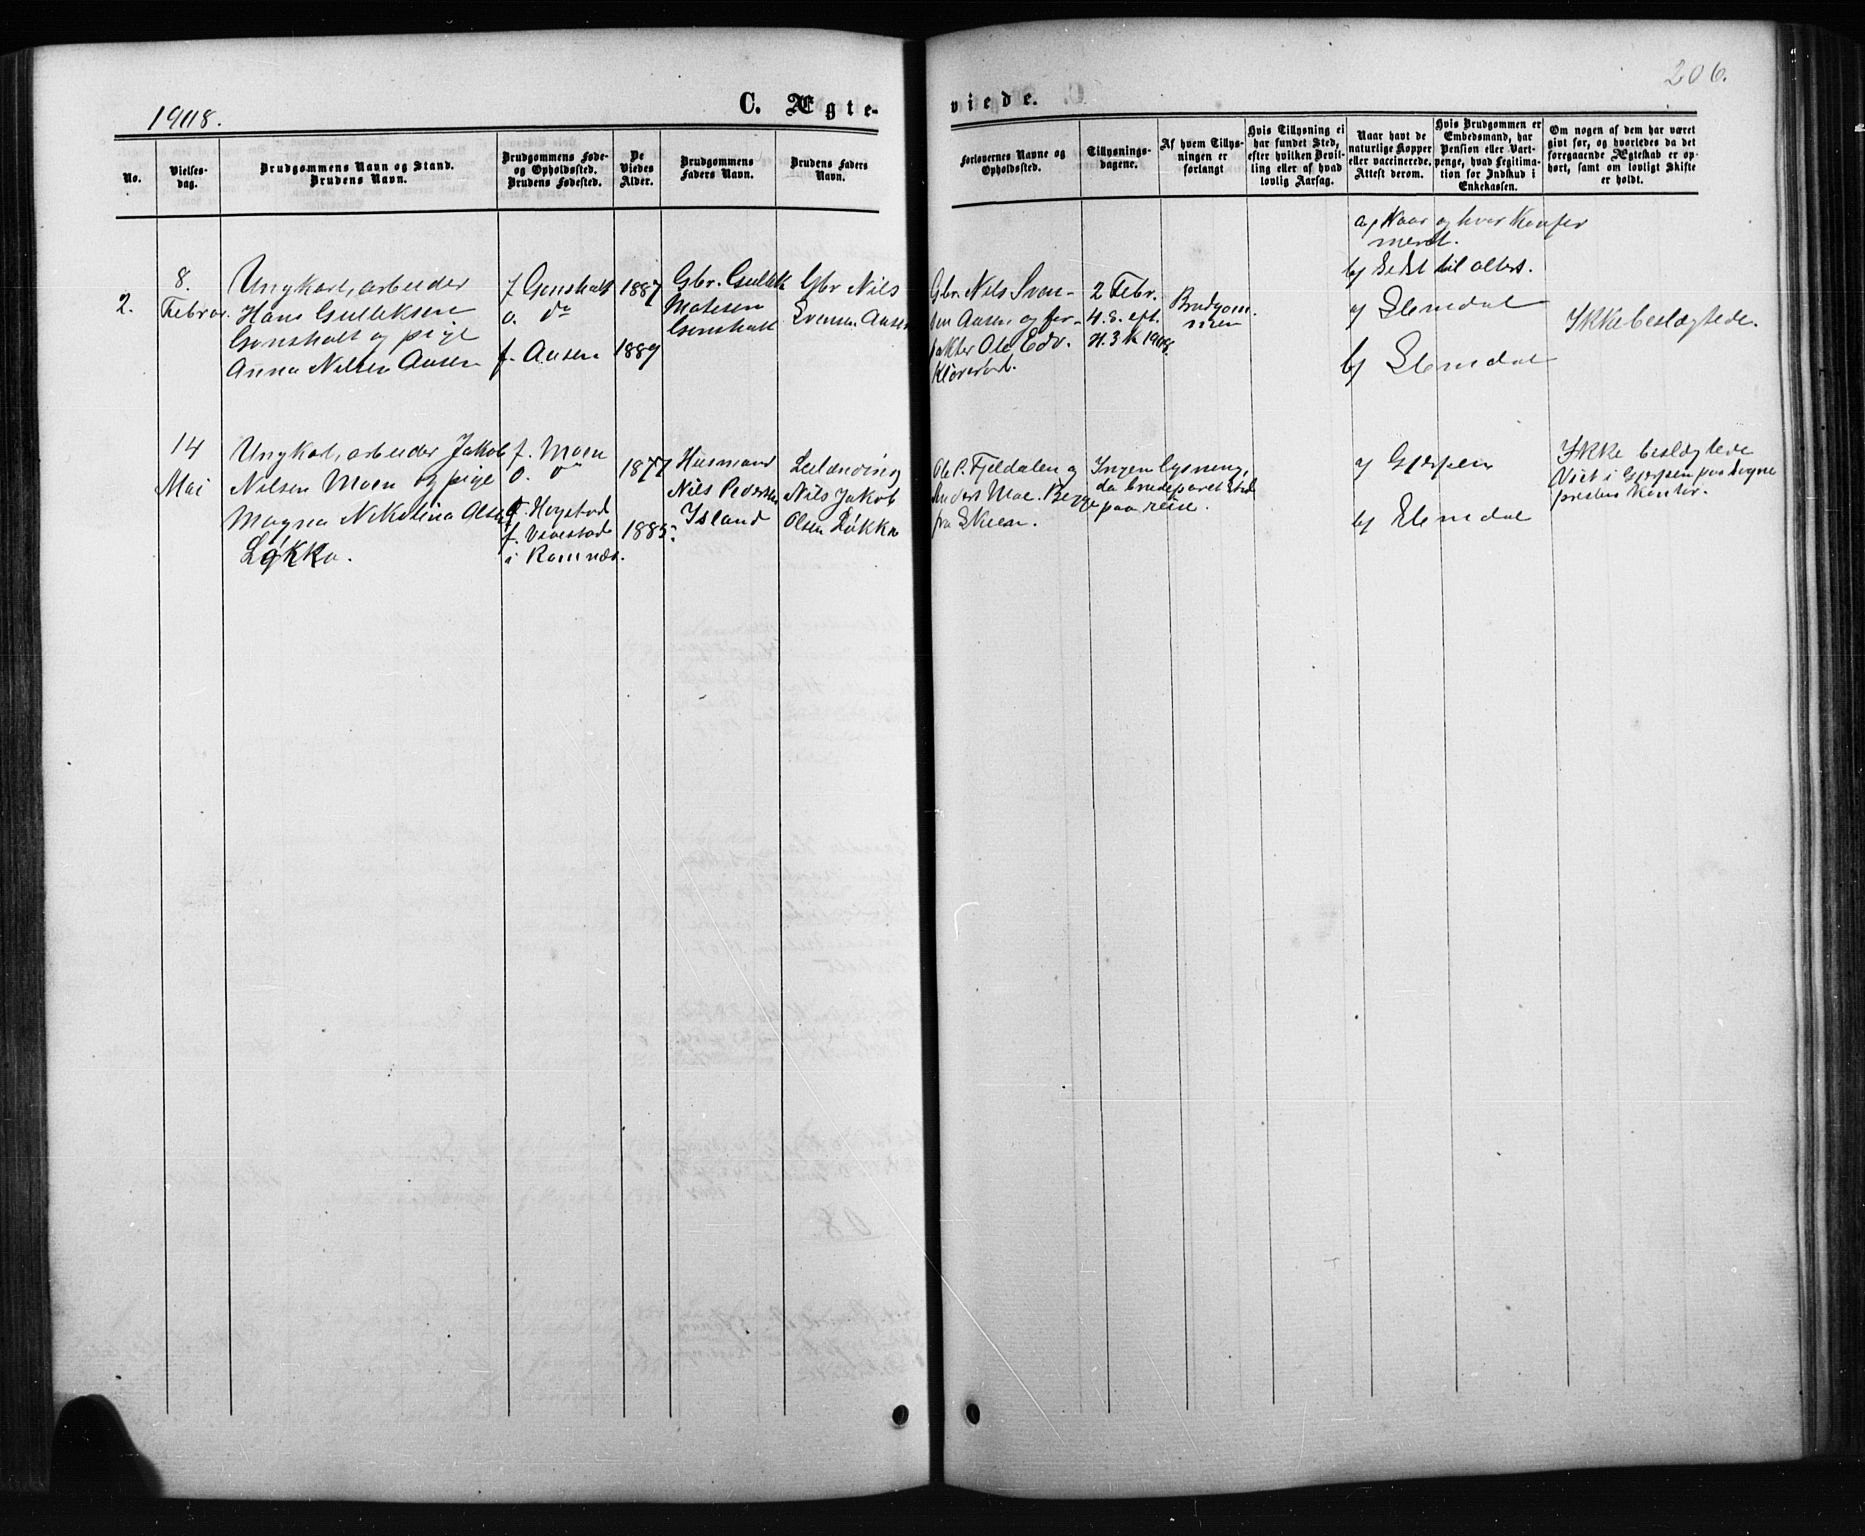 206.
1908.
C. Ægte-
viede.
No.
Vielses-
dag.
Brudgommens Navn og Stand.
Brudens Navn.
Brudgommens Føde-
og Opholdssted.
Brudens Fødested.
De
Viedes
Alder.
Brudgommens
Faders Navn.
Brudens Faders
Navn.
Forlovernes Navne og
Opholdssted.
Tillysnings-
dagene.
Af hvem Tillys-
ningen er
forlangt
Hvis Tillysning ei
har fundet Sted,
efter hvilken Bevil-
ling eller af hvad
lovlig Aarsag.
Naar havt de
naturlige Kopper
eller vaccinerede.
Attest derom.
Hvis Brudgommen er
Embedsmand, har
Pension eller Vart-
penge, hvad Legitima-
tion for Indskud i
Enkekassen.
Om nogen af dem har været
givt før, og hvorledes da det
foregaaende Ægteskab er op-
hørt, samt om lovligt Skifte
er holdt.
a) Naar og hvor Konfir
meret.
b) Sidst til alters.
2.
8.
Februar.
Ungkarl, arbeider
Hans Gulliksen
Gonsholt og pige
Anna Nilsen Aasen
f Gonsholt
o. do
f. Aasen
1887
1889
Gbr. Gullik
Matisen
Gonsholt
Gbr Nils
Svensen Aasen
Gbr. Nils Sven-
sen Aasen og for-
pakter Ole Edv.
Kløverød.
2 Febr.
4. S. eft.
H. 3 K 1908.
Brudgom.
men
a) Slemdal
b) Slemdal
Ikke beslægtede.
14
Mai
Ungkarl, arbeider Jakob
Nilsen Moen og pige
Magna Nikoline Olsen
Løkka.
f. Moen
o. do
i Ramnæs.
1877
1885
Husmand
Nils Pedersen
Island
Leilænding
Nils Jakob
Olsen Løkka
Ole P. Fjeldalen og
Anders Moe. Begge
fra Skien.
Ingen lysning,
da brudeparet stod
paa reise.
a) Gjerpen
b) Slemdal
Ikke beslægtede
Viet i Gjerpen paa Sogne
prestens Kontor.